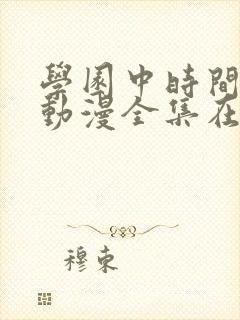 學園中時間
動漫全集在
穆束